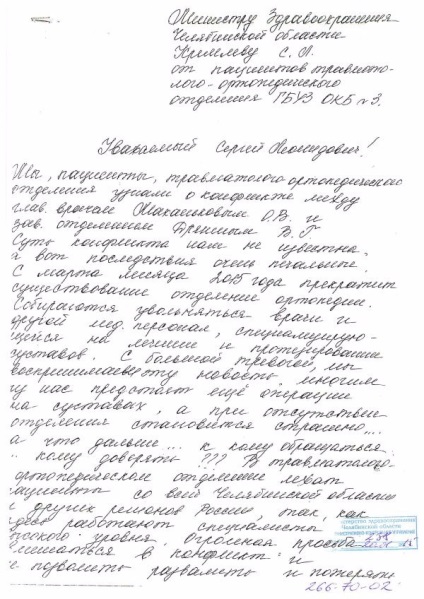 Министру Здравоохранения
Челябинской области
Кремлеву С. Л.
от пациентов травмато-
лого-ортопедического
отделения ГБУЗ ОКБ №3.
Уважаемый Сергей Леонидович!
Мы, пациенты, травматолого ортопедического
отделения узнали о конфликте между
глав. врачом Маханьковым О.В. и
зав. отделением В. Г
Суть конфликта нам не известна,
а вот последствия очень печальные.
С марта месяца 2015 года прекратит
существование отделение ортопедии.
Собираются увольняться врачи и
другой мед. персонал, специализирую-
щийся на лечении и протезировании
суставов. С большой тревогой, мы
воспринимаем эту новость, многим
из нас предстоят ещё операции
на суставах, а при отсутствии
отделения становится страшно...
а что дальше... к кому обращаться
кому доверять ??? В травматолого-
ортопедическом отделении лежат
пациенты со всей Челябинской области
и других регионов России, так, как
здесь работают специалисты
высокого уровня. Огромная просьба
вмешаться в конфликт и
не позволить развалить и потерять
266-70-02